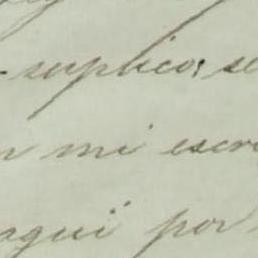 suplico; se
mi escri
aqui por